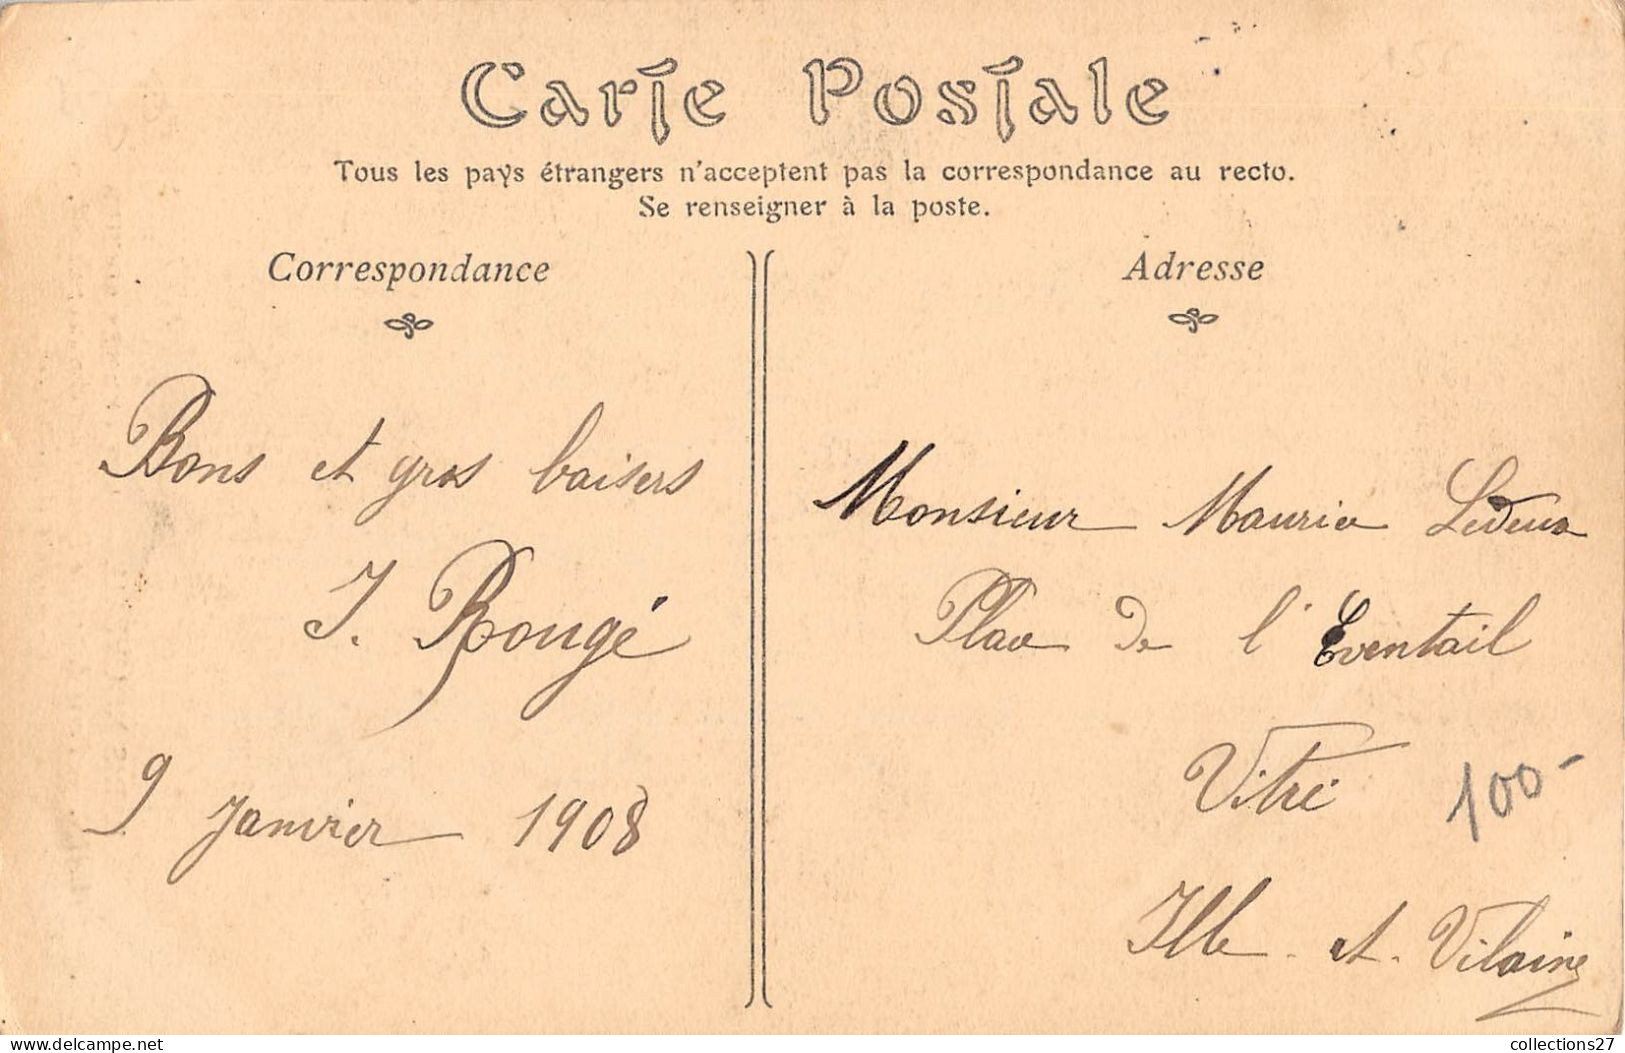 Carte Postale
Tous les pays étrangers n'acceptent pas la correspondance au recto.
Se renseigner à la poste.
Correspondance
Bons et gros baisers
J. Rougé
9 Janvier 1908
Adresse
Monsieur Maurice
Place de l'Eventail
Vitré
100-
Ille-et-Vilaine
collections27